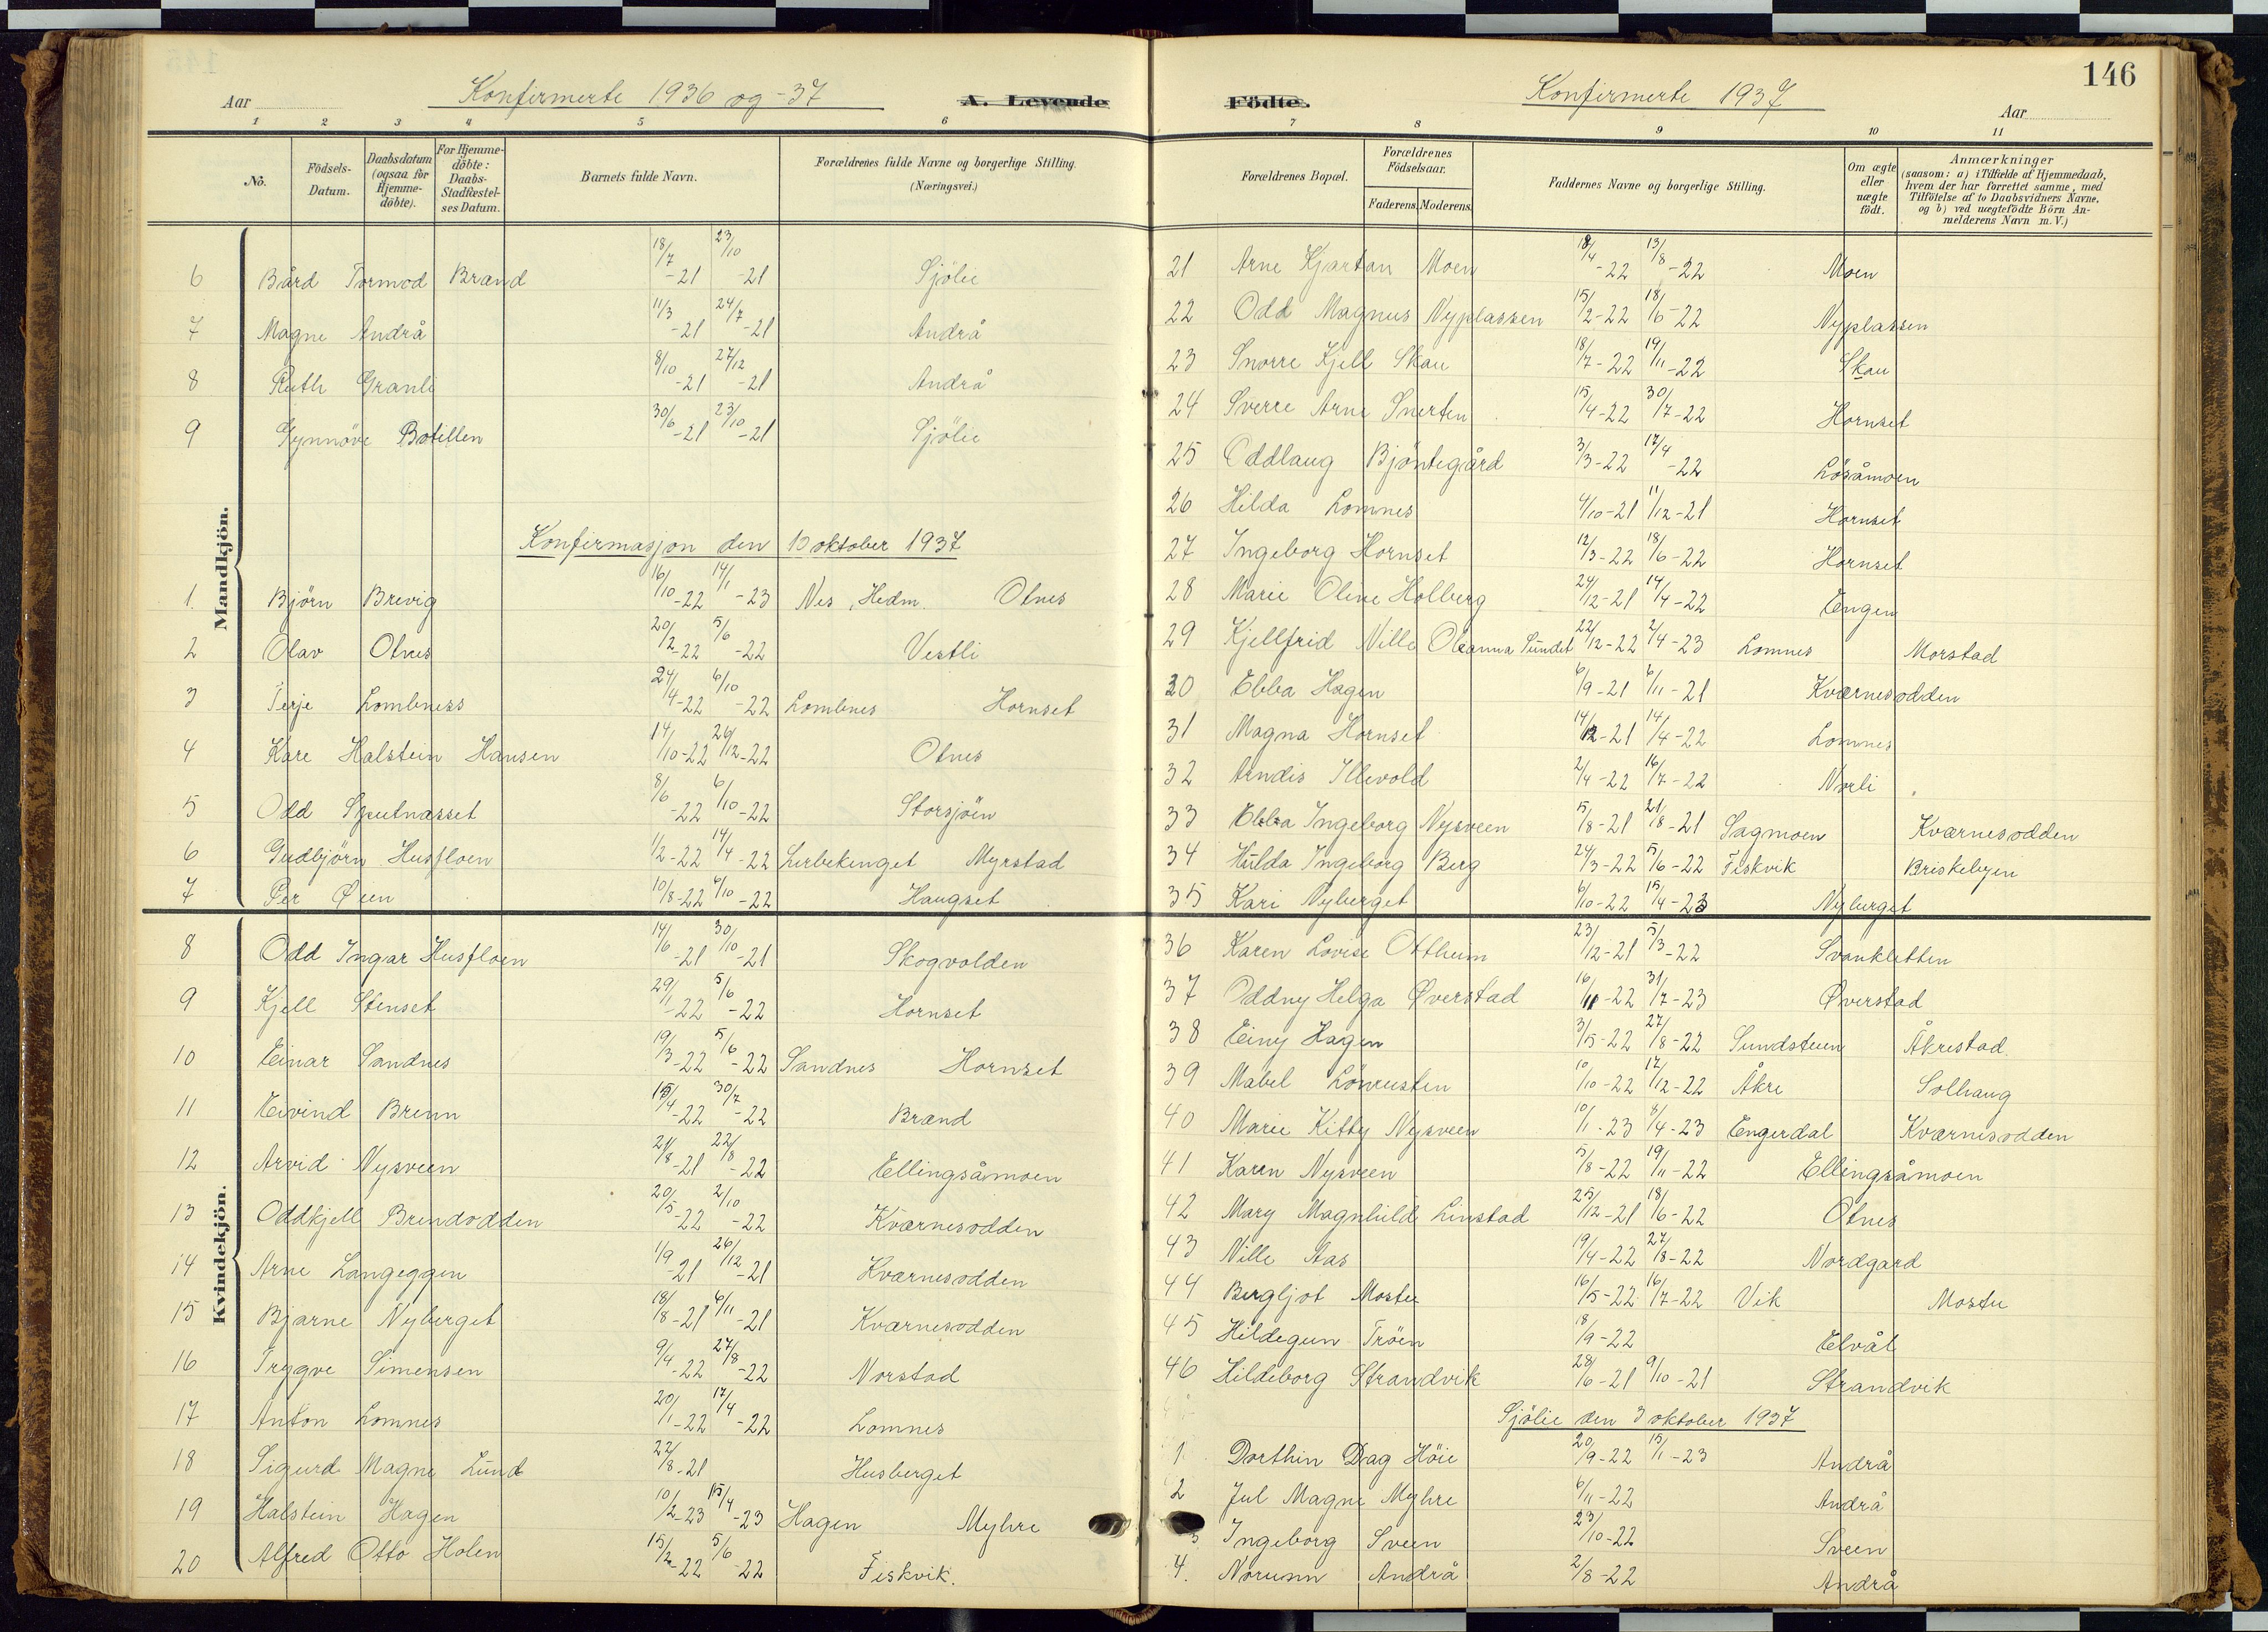 Aar Konfirmerte 1936 og -37 A. Levende
1 2 3 4 5 6
No. Födsels-Datum. Daabsdatum (ogsaa for Hjemme-döbte). For Hjemme-döbte: Daabs-Stadfæstel-ses Datum. Barnets fulde Navn. Forældrenes fulde Navne og borgerlige Stilling. (Næringsvei.)
Mandkjön.
6 Bård Tormod Brænd 18/7 -21 23/10 -21 Sjölie
7 Magne Andrå 11/3 -21 24/7 -21 Andrå
8 Ruth Granli 8/10 -21 27/12 -21 Andrå
9 Synnöve Botillen 30/6 -21 23/10 -21 Sjölie
Konfirmasjon den 10 oktober 1937
1. Björn Brevig 16/10 -22 14/1 -23 Nes, Hedm. Otnes
2 Olav Otnes 20/2 -22 5/6 -22 Vestli
3 Terje Lombness 24/4 -22 6/10 -22 Lombnes Hornset
4 Kåre Halstein Hansen 14/10 -22 26/12 -22 Otnes
5 Odd Sputnæsset 8/6 -22 6/10 -22 Storsjöen
6 Gudbjörn Husfloen 1/2 -22 14/4 -22 Lerbekenget Myrstad
7 Per Øien 10/8 -22 6/10 -22 Haugset
Kvindekjön.
8 Odd Ingar Husfloen 14/6 -21 30/10 -21 Skogvolden
9 Kjell Stenset 29/1 -22 5/6 -22 Hornset
10 Einar Sandnes 19/3 -22 5/6 -22 Sandnes Hornset
11 Eivind Brenn 15/4 -22 30/7 -22 Brænd
12 Arvid Nysveen 21/8 -21 22/8 -22 Ellingsåmoen
13 Oddkjell Brendodden 20/5 -22 2/10 -22 Kværnesodden
14 Arne Langeggen 1/9 -21 26/12 -21 Kværnesodden
15 Bjarne Nyberget 18/8 -21 6/11 -21 Kværnesodden
16 Trygve Simensen 9/4 -22 27/8 -22 Norstad
17 Anton Lomnes 20/1 -22 17/4 -22 Lomnes
18 Sigurd Magne Lund 22/8 -21 Husberget
19 Halstein Hagen 10/2 -23 15/4 -23 Hagen Myhre
20 Alfred Otto Holen 15/2 -22 5/6 -22 Fiskvik.
Födte. Konfirmerte 1937 Aar 146
7 8 9 10 11
Forældrenes Bopæl. Forældrenes Födselsaar. Faderens. Moderens. Faddernes Navne og borgerlige Stilling. Om ægte eller uægte födt. Anmærkninger (saasom: a) i Tilfælde af Hjemmedaab, hvem der har forrettet samme, med Tilföielse af to Daabsvidners Navne, og b) ved uægtefödte Börn Anmelderens Navn m. V.)
21 Arne Kjartan Moen 18/4 -22 13/8 -22 Moen
22 Odd Magnus Nyplassen 15/2 -22 18/6 -22 Nyplassen
23 Snorre Kjell Skau 18/7 -22 19/11 -22 Skau
24 Sverre Arne Snerten 15/4 -22 30/7 -22 Hornset
25 Oddlaug Bjöntegård 3/3 -22 17/4 -22 Lösåmoen
26 Hilda Lomnes 4/10 -21 11/12 -21 Hornset
27 Ingeborg Hornset 12/3 -22 18/6 -22 Hornset
28 Marie Oline Holberg 24/12 -21 14/4 -22 Engen
29 Kjellfrid Nille Oleanna Sundet 22/12 -22 2/4 -23 Lomnes Morstad
30 Ebba Hagen 6/9 -21 6/11 -21 Kværnesodden
31 Magna Hornset 14/12 -21 14/4 -22 Lomnes
32 Arndis Illevold 2/4 -22 16/7 -22 Norli
33 Ebba Ingeborg Nysveen 5/8 -21 21/8 -21 Sagmoen Kværnesodden
34 Hulda Ingeborg Berg 24/3 -22 5/6 -22 Fiskvik Briskebyen
35 Kari Nyberget 6/10 -22 15/4 -23 Nyberget
36 Karen Lovise Ottheim 23/12 -21 5/3 -22 Svankletten
37 Oddny Helga Øverstad 16/11 -22 31/7 -23 Øverstad
38 Einy Hagen 3/5 -22 27/8 -22 Sundsteen Åkrestad.
39 Mabel Lönrusten 10/10 -22 17/12 -22 Åkre Solhaug
40 Marie Kitty Nysveen 10/1 -23 8/4 -23 Engerdal Kværnesodden
41 Karen Nysveen 5/8 -22 19/11 -22 Ellingsåmoen
42 Mary Magnhild Linstad 25/12 -21 18/6 -22 Otnes
43 Nille Aas 19/4 -22 27/8 -22 Nordgard
44 Bergljot Mostu 16/5 -22 16/7 -22 Vik Mostu
45 Hildegun Tröen 18/9 -22 Elvål
46 Hildeborg Strandvik 28/6 -21 9/10 -21 Strandvik
Sjölie den 3 oktober 1937
1. Dorthin Dag Höie 20/9 -22 15/1 -23 Andrå
2 Jul Magne Myhre 6/11 -22 Andrå
3 Ingeborg Sveen 23/10 -22 Sveen
4. Norunn Andrå 2/8 -22 Andrå